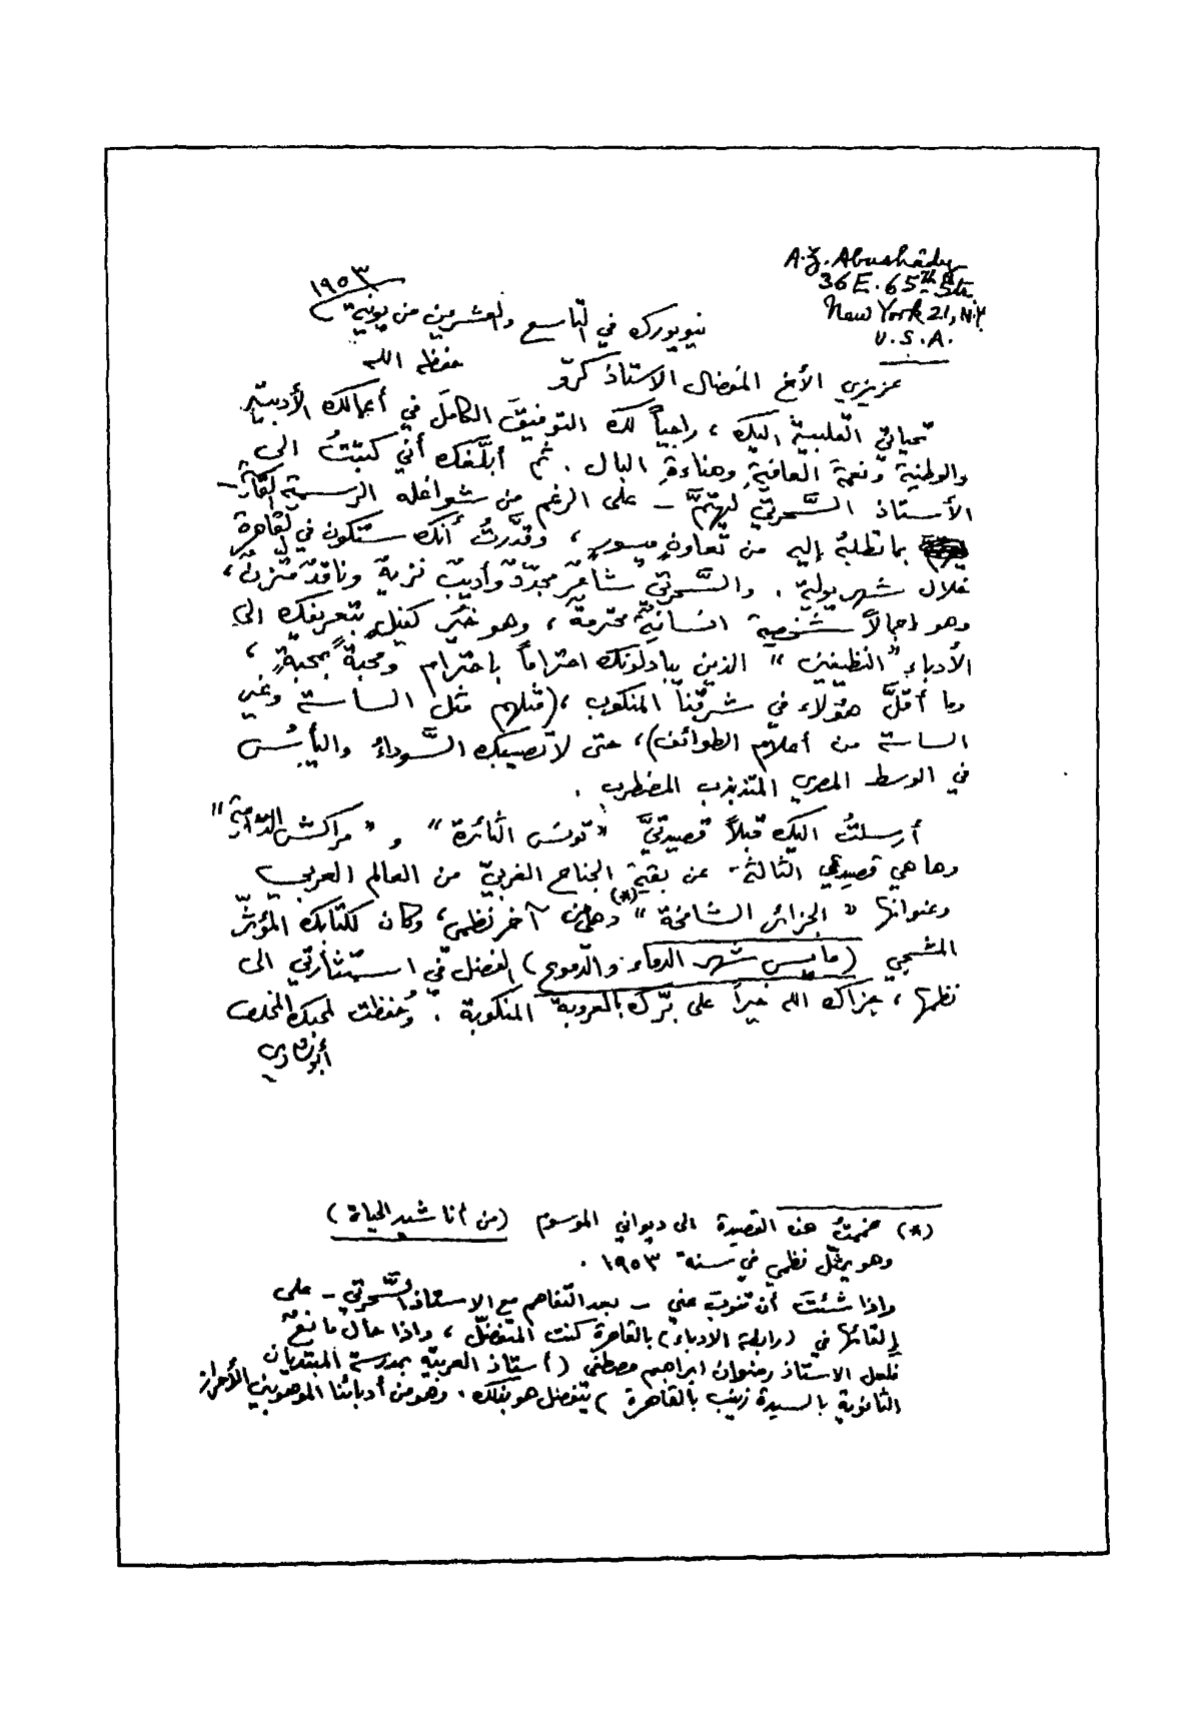 A. Z. Abushâdy
36 E. 65th Str.
New York 21, N.Y.
U.S.A.
نيويورك في التاسع والعشرين من يونية ١٩٥٣
عزيزي الأخ المفضال الاستاذ كرّو حفظه الله
تحياتي القلبية اليك ، راجياً لك التوفيقَ الكاملَ في أعمالك الأدبية
والوطنية ونعمة العافية وهناءةِ البال . ثم أبلّغك أني كتبتُ الى
الأستاذ السَّحرتي ليهتمَّ – على الرغم من شواغله الرسمية الكثيرة –
بما تطلبهُ إليه من تعاونٍ ميسورٍ ، وقدَّرتُ أنك ستكون في القاهرة
خلال شهر يولية . والسَّحرتي شاعرٌ مجدّدٌ وأديبٌ نزيهٌ وناقدٌ متّزنٌ ،
وهو إجمالاً شخصية انسانيّة محترمة ، وهو خير كفيلٍ بتعريفك الى
الأدباء "النظيفين" الذين يبادلونك احتراماً باحترام ومحبةً بمحبةٍ ،
وما أقلَّ هؤلاء في شرقنا المنكوب ، (مثلهم مثل الساسة وغير
الساسة من أعلام الطوائف) ، حتى لا تصيبك السَّوداءُ واليأسُ
في الوسط المصري المتذبذب المضطرب .
أرسلتُ اليك قبلاً قصيدتيَّ "تونس الثائرة" و "مراكش الدامية"
وها هي قصيدتي الثالثة عن بقية الجناح الغربيّ من العالم العربي
وعنوانها "الجزائر الشامخة" (*) وهي من آخر نظمي ، وكان لكتابك المؤثّر
المشجي (مايس شهر الدماء والدموع) الفضل في استثارتي الى
نظمها ، جزاك الله خيراً على برّك بالعروبة المنكوبة . وحُفظت لمحبك المخلص
أبو شادي
(*) ضممتُ هذه القصيدة الى ديواني الموسوم (من أناشيد الحياة)
وهو يمثّل نظمي في سنة ١٩٥٣ .
واذا شئتَ أن تنوبَ عني – بعد التفاهم مع الاستاذ السَّحرتي – على
إلقائها في (رابطة الادباء) بالقاهرة كنت المتفضّل ، واذا حال مانعٌ
فلعل الاستاذ رضوان ابراهيم مصطفى (أستاذ العربية بمدرسة المبتديان
الثانوية بالسيدة زينب بالقاهرة) يتفضل هو بذلك . وهو من أدبائنا الموهوبين الأحرار